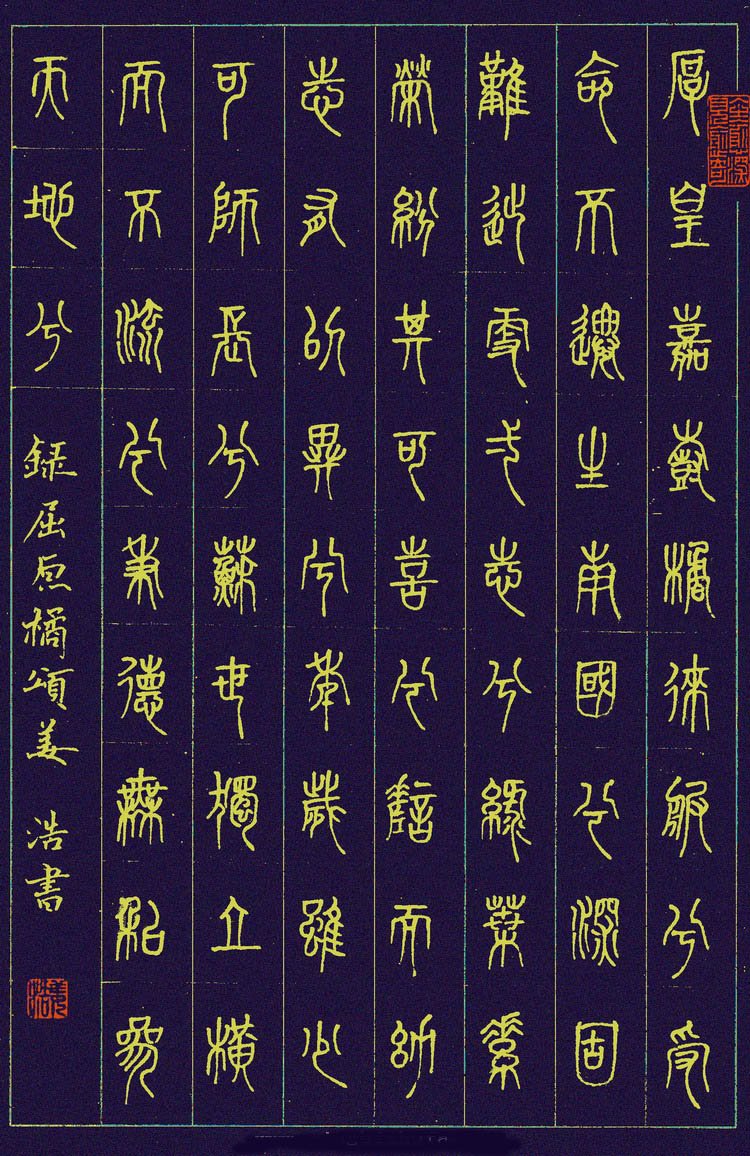 厚皇嘉樹橘徠服兮受
命不遷生南國兮深固
難徙更弌志兮綠葉素
榮紛其可喜兮嗟而幼
志有以異兮年歲雖少
可師長兮蘇世獨立橫
而不流兮秉德無私參
天地兮 錄屈原橘頌姜 浩書
姜浩